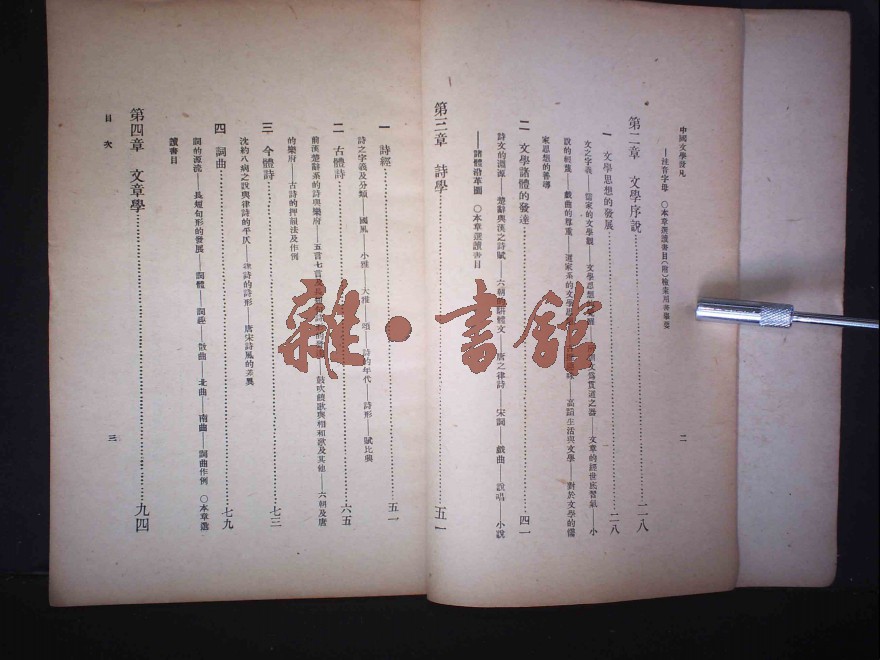 中國文學發凡
——注音字母 〇本章選讀書目(附)檢業用書舉要
第二章 文學序說 二八
一 文學思想的發展 二八
文之字義——儒家的文學觀——文學思想的——文爲貫道之器——文章的經世底習氣——小
說的輕蔑——戲曲的尊重——道家系的文學——高蹈生活與文學——對於文學的儒
家思想的善導
二 文學諸體的發達 四一
詩文的淵源——楚辭與漢之詩賦——六朝駢體文——唐之律詩——宋詞——戲曲——說唱——小說
——諸體沿革圖 〇本章選讀書目
第三章 詩學 五一
二
一 詩經 五一
詩之字義及分類——國風——小雅——大雅——頌——詩的年代——詩形——賦比興
二 古體詩 六五
前漢楚辭系的詩與樂府——五言七言及——鼓吹鐃歌與相和歌及其他——六朝及唐
的樂府——古詩的押韻法及作例
三 今體詩 七三
沈約八病之說與律詩的平仄——律詩的詩形——唐宋詩風的差異
四 詞曲 七九
詞的源流——長短句形的發展——詞體——詞韻——散曲——北曲——南曲——詞曲作例 〇本章選
讀書目
第四章 文章學 九四
目次
三
雜·書館